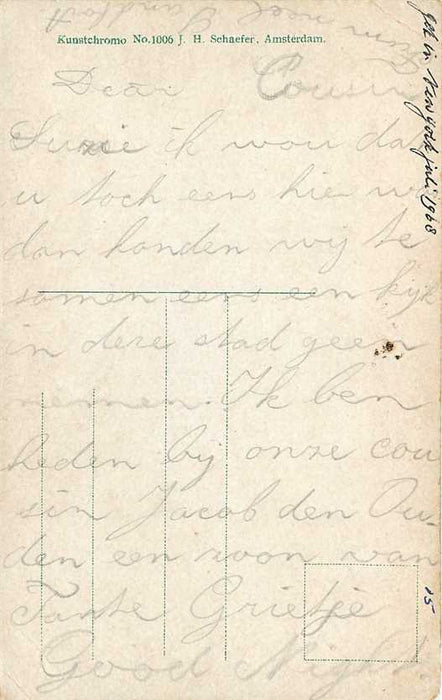 Kunstchromo No.1006 J. H. Schaefer, Amsterdam.
Dear Cousin
Suzie ik wou dat
u toch eens hier w
dan konden wij te
samen eens een kijk
in deze stad geen
nemen. Ik ben
heden bij onze cou
sin Jacob den Ou-
den een zoon van
Tante Grietje
Good Night
in New york juli 1968
15